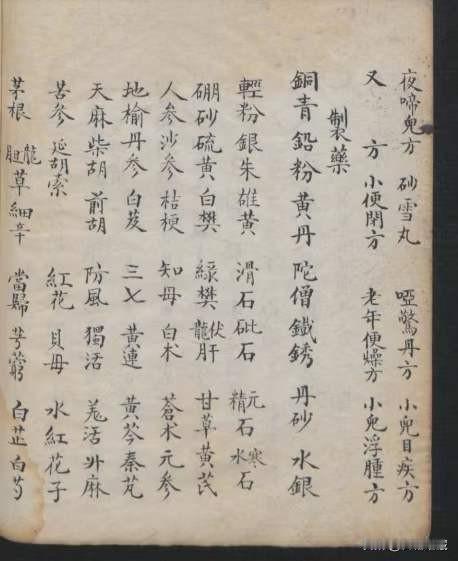 夜啼兒方 砂雪丸 啞驚丹方 小兒目疾方
又 方 小便閉方 老年便燥方 小兒浮腫方
製藥
銅青 鉛粉 黃丹 陀僧 鐵銹 丹砂 水銀
輕粉 銀朱 雄黃 滑石 砒石 元精石 寒水石
硼砂 硫黃 白礬 綠礬 伏龍肝 甘草 黃芪
人參 沙參 桔梗 知母 白朮 蒼朮 元參
地榆 丹參 白芨 三七 黃連 黃芩 秦艽
天麻 柴胡 前胡 防風 獨活 羗活 升麻
苦參 延胡索 紅花 貝母 水紅花子
茅根 龍胆草 細辛 當歸 芎藭 白芷 白芍